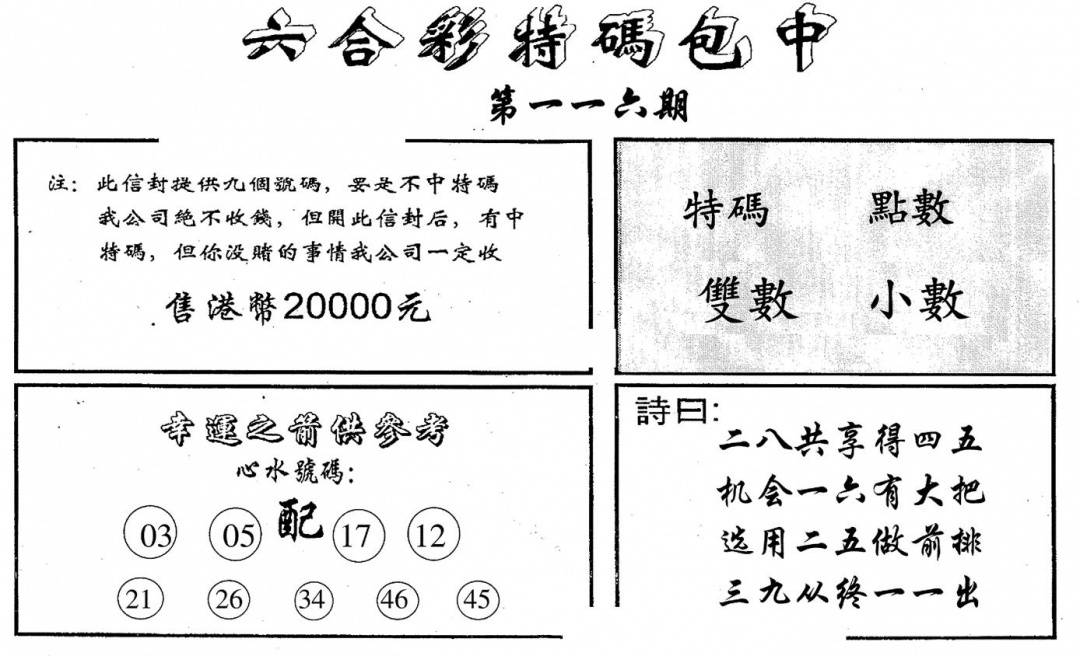 六合彩特碼包中
第一一六期
注：此信封提供九個號碼，要是不中特碼
我公司絕不收錢，但開此信封后，有中
特碼，但你没賭的事情我公司一定收
售港幣20000元
特碼 點數
雙數 小數
幸運之箭供參考
心水號碼：
03 05 配 17 12
21 26 34 46 45
詩曰：
二八共享得四五
机会一六有大把
选用二五做前排
三九从终一一出